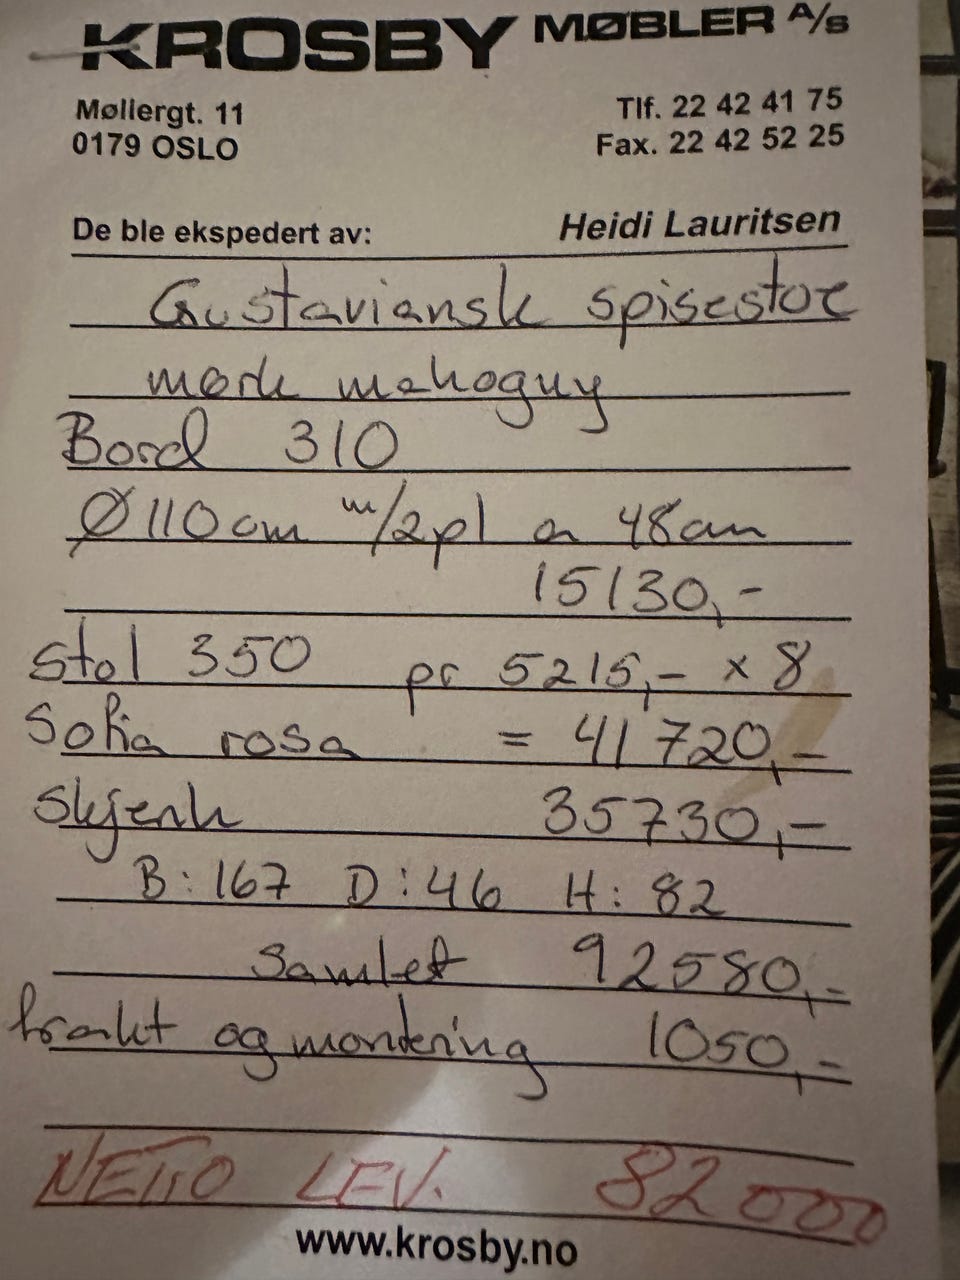 KROSBY MØBLER A/S
Møllergt. 11
0179 OSLO
Tlf. 22 42 41 75
Fax. 22 42 52 25
De ble ekspedert av: Heidi Lauritsen
Gustaviansk spisestoe
mørk mahogny
Bord 310
Ø 110 cm m/2pl a 48cm
15130,-
Stol 350 pr 5215,- x 8
Sofia rosa = 41 720,-
Skjenk 35730,-
B: 167 D: 46 H: 82
Samlet 92580,-
frakt og montering 1050,-
NETTO LEV. 82000
www.krosby.no